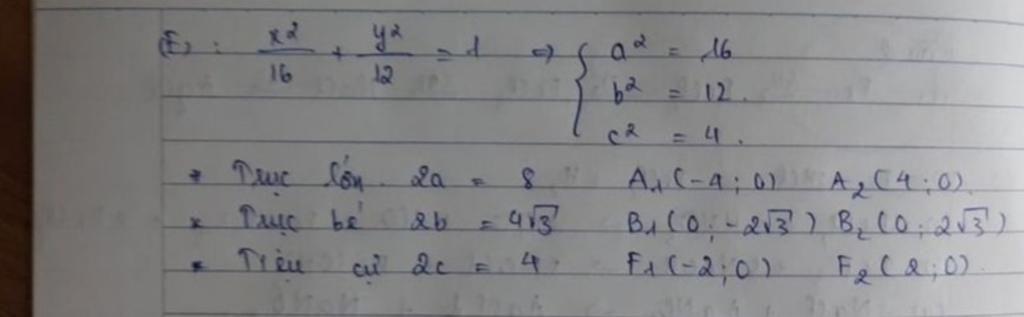 (E) : x²/16 + y²/12 = 1 ⇒ { a² = 16
b² = 12.
c² = 4.
* Trục lớn 2a = 8 A₁(-4; 0) A₂(4; 0).
* Trục bé 2b = 4√3 B₁(0; -2√3) B₂(0; 2√3)
* Tiêu cự 2c = 4 F₁(-2; 0) F₂(2; 0).